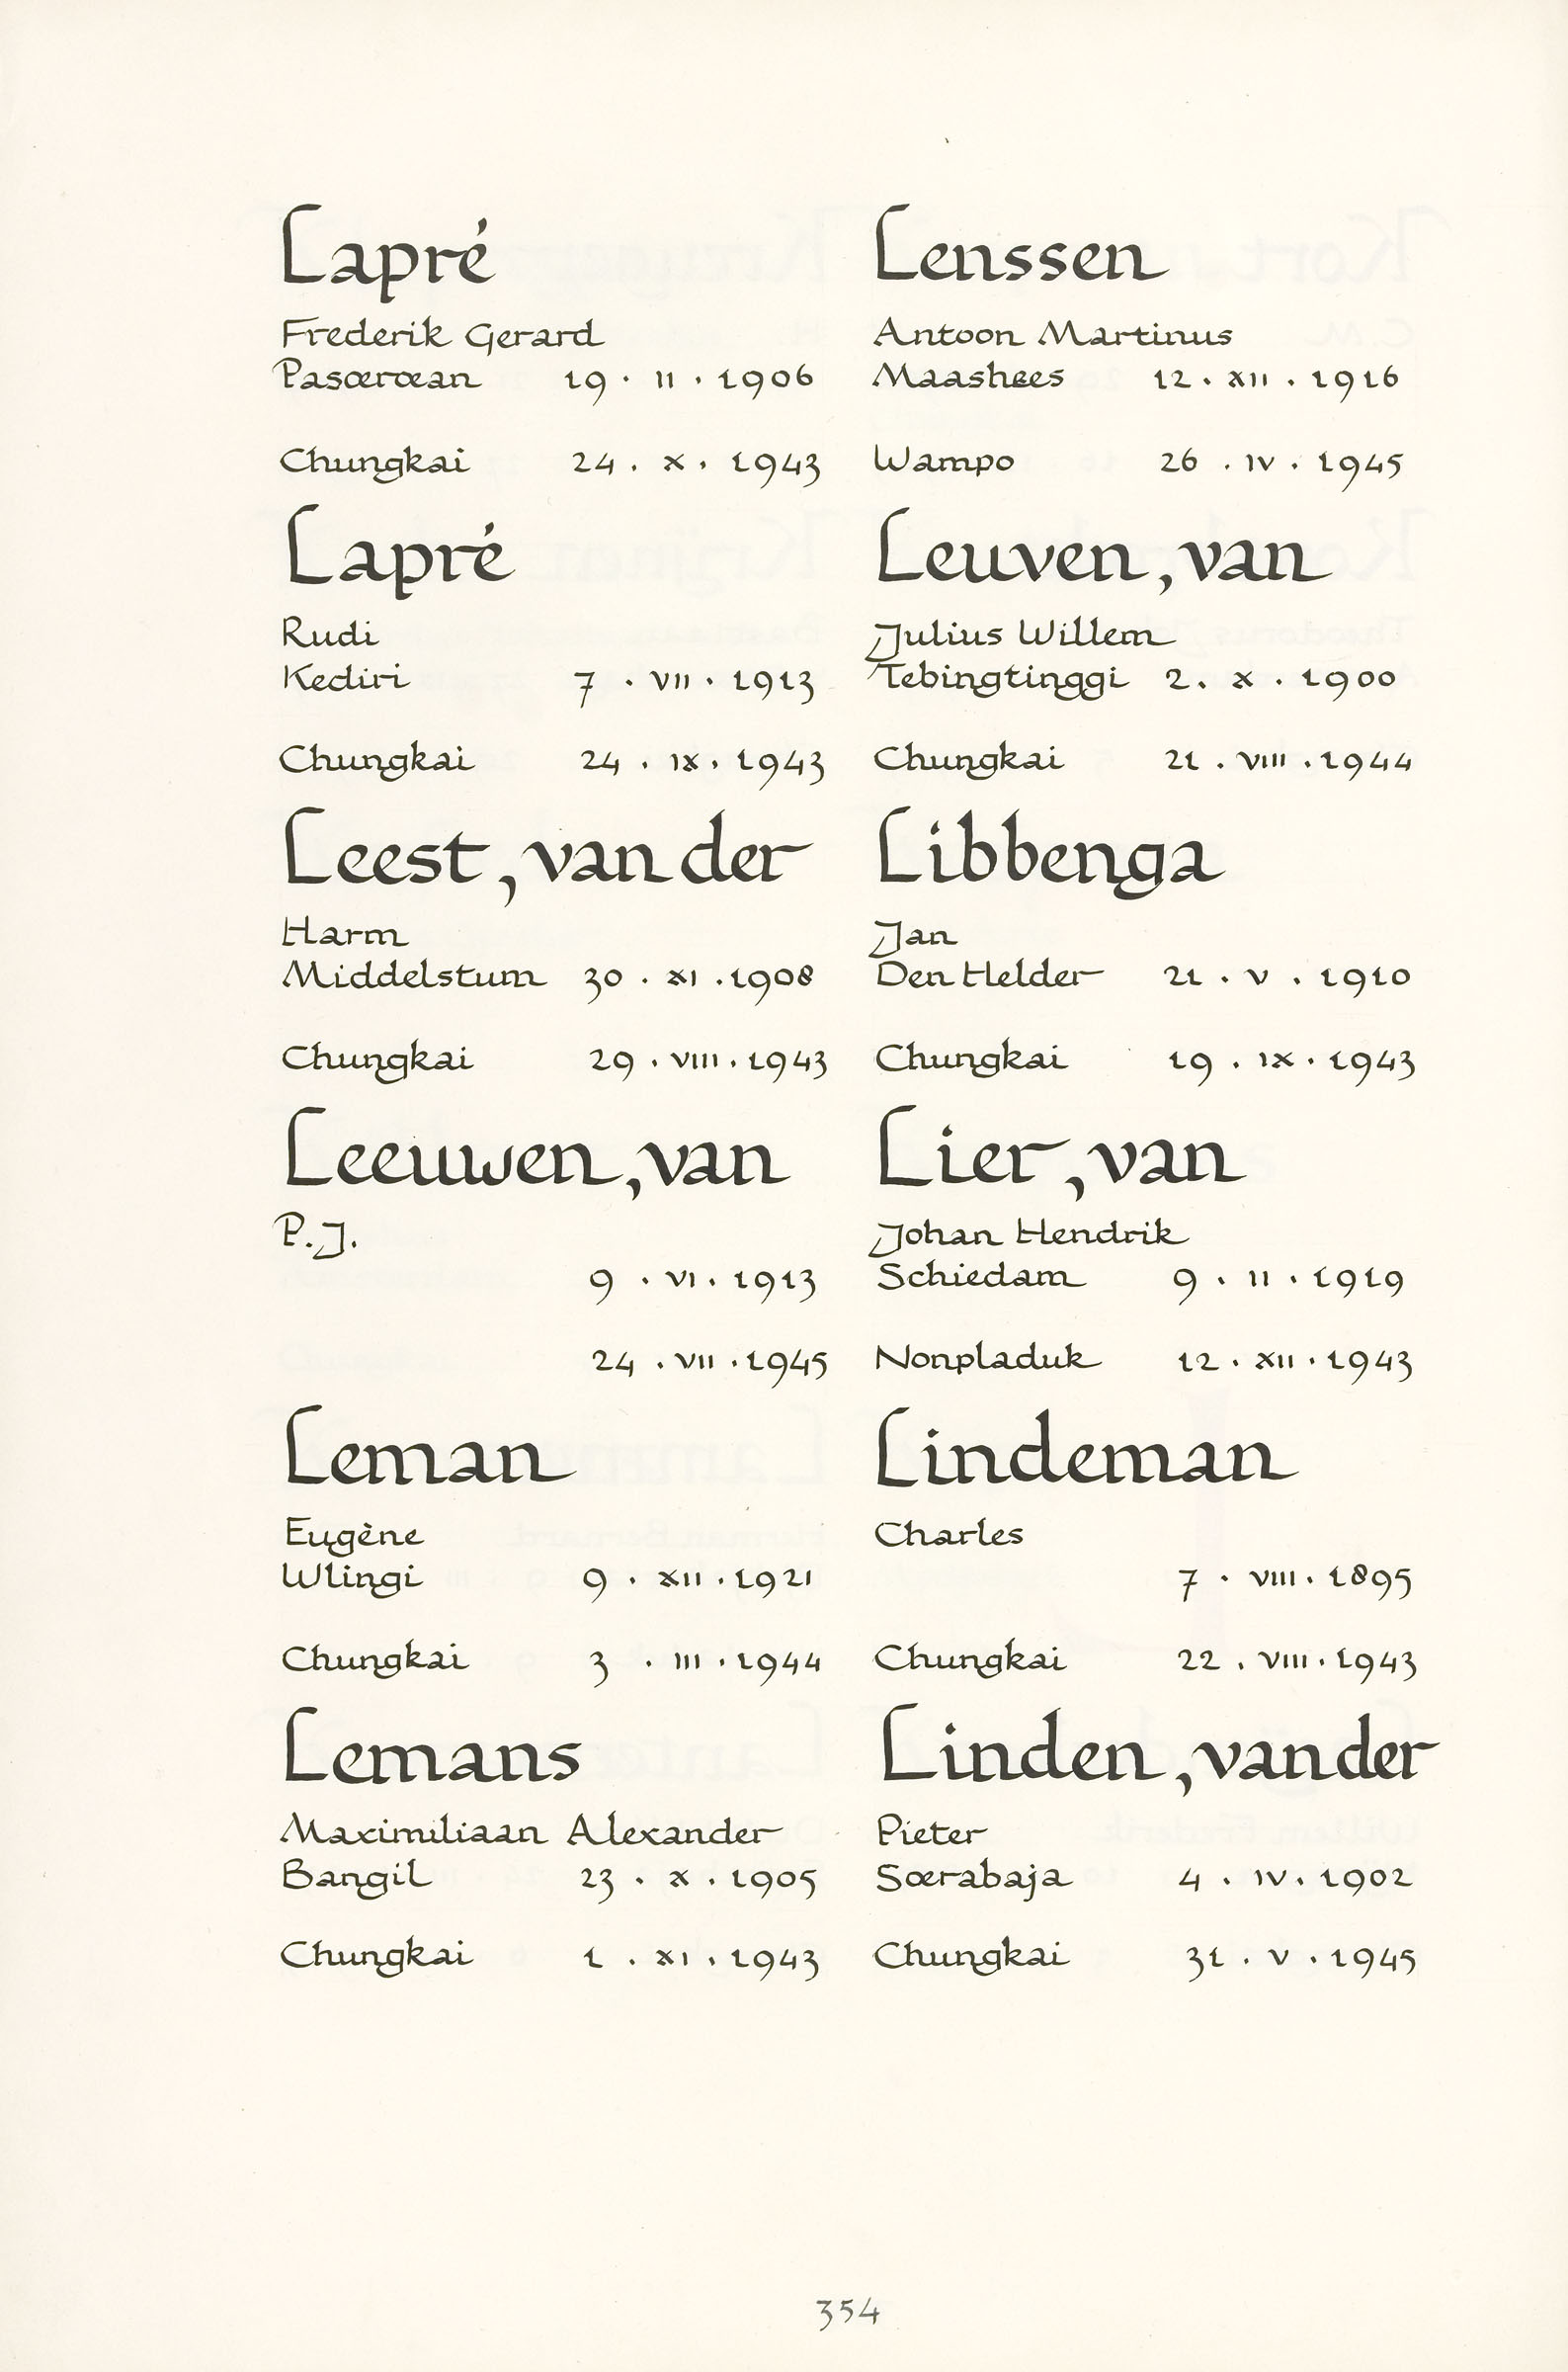 Lapré
Frederik Gerard
Pasœrœan 19 · II · 1906
Chungkai 24 · X · 1943
Lapré
Rudi
Kediri 7 · VII · 1913
Chungkai 24 · IX · 1943
Leest, van der
Harm
Middelstum 30 · XI · 1908
Chungkai 29 · VIII · 1943
Leeuwen, van
P.J.
9 · VI · 1913
24 · VII · 1945
Leman
Eugène
Wlingi 9 · XII · 1921
Chungkai 3 · III · 1944
Lemans
Maximiliaan Alexander
Bangil 23 · X · 1905
Chungkai 1 · XI · 1943
Lenssen
Antoon Martinus
Maashees 12 · XII · 1916
Wampo 26 · IV · 1945
Leuven, van
Julius Willem
Tebingtinggi 2 · X · 1900
Chungkai 21 · VIII · 1944
Libbenga
Jan
Den Helder 21 · V · 1910
Chungkai 19 · IX · 1943
Lier, van
Johan Hendrik
Schiedam 9 · II · 1919
Nonpladuk 12 · XII · 1943
Lindeman
Charles
7 · VIII · 1895
Chungkai 22 · VIII · 1943
Linden, van der
Pieter
Sœrabaja 4 · IV · 1902
Chungkai 31 · V · 1945
354